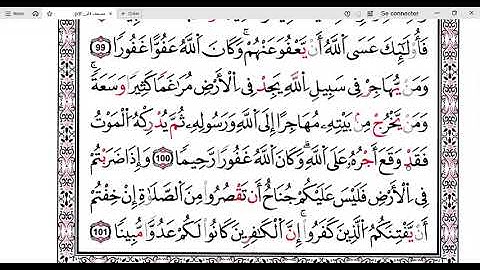 Se connecter
فَأُوْلَٰٓئِكَ عَسَى اَ۬للَّهُ أَنْ يَّعْفُوَ عَنْهُمْۖ وَكَانَ اَ۬للَّهُ عَفُوًّا غَفُورًا 99
وَمَنْ يُّهَاجِرْ فِي سَبِيلِ اِ۬للَّهِ يَجِدْ فِي اِ۬لْأَرْضِ مُرَٰغَمًا كَثِيرًا وَسَعَةًۖ
وَمَنْ يَّخْرُجْ مِنۢ بَيْتِهِۦ مُهَاجِرًا إِلَى اَ۬للَّهِ وَرَسُولِهِۦ ثُمَّ يُدْرِكْهُ اُ۬لْمَوْتُ
فَقَدْ وَقَعَ أَجْرُهُۥ عَلَى اَ۬للَّهِۖ وَكَانَ اَ۬للَّهُ غَفُورًا رَّحِيمًا 100 وَإِذَا ضَرَبْتُمْ
فِي اِ۬لْأَرْضِ فَلَيْسَ عَلَيْكُمْ جُنَاحٌ أَن تَقْصُرُواْ مِنَ اَ۬لصَّلَوٰةِ إِنْ خِفْتُمْ
أَنْ يَّفْتِنَكُمُ اُ۬لذِينَ كَفَرُوٓاْۖ إِنَّ اَ۬لْكَٰفِرِينَ كَانُواْ لَكُمْ عَدُوًّا مُّبِينًا 101